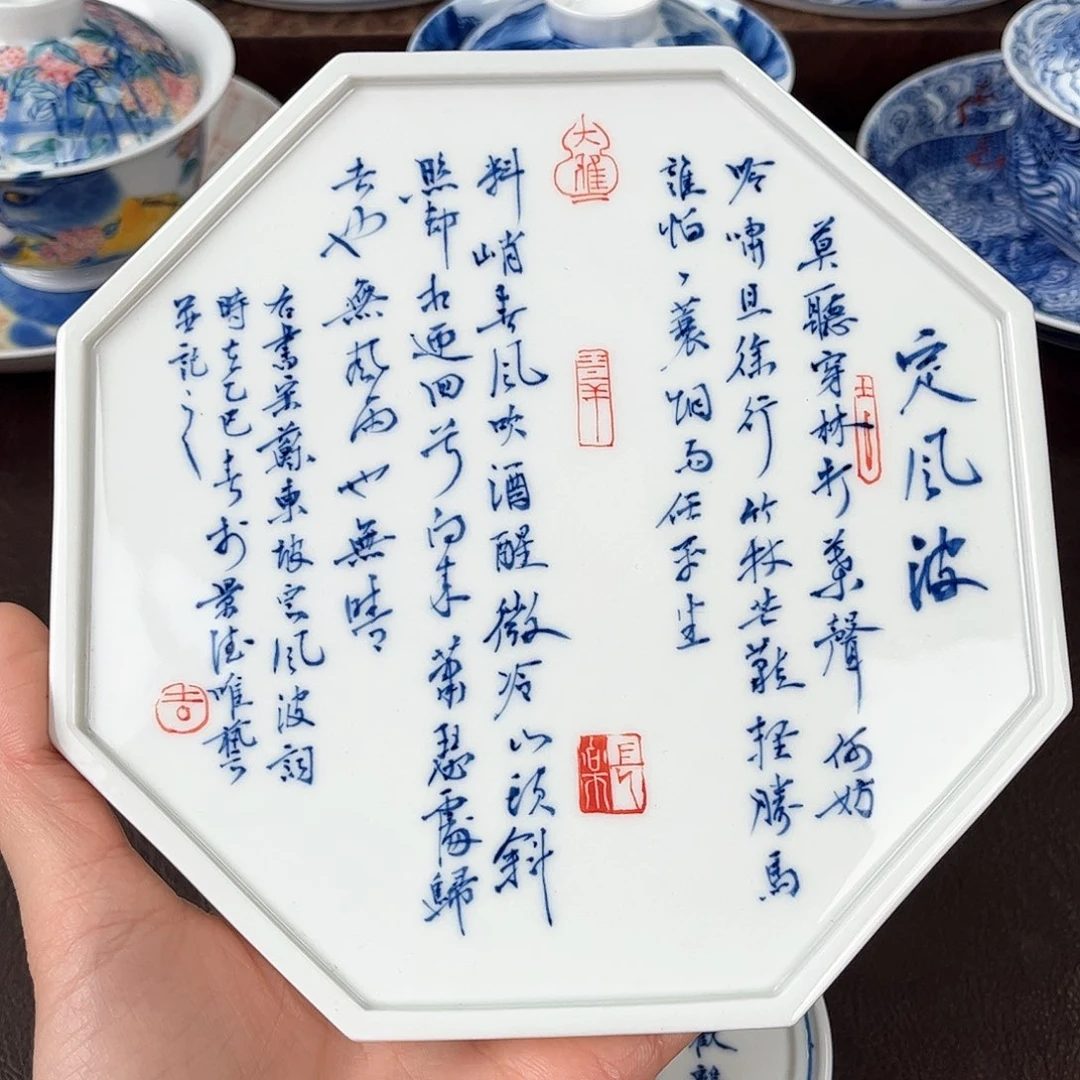 定风波
莫聽穿林打葉聲何妨
吟嘯且徐行竹杖芒鞋轻勝馬
誰怕一蓑烟雨任平生
大雅
長樂
料峭春风吹酒醒微冷山頭斜
照却相迎回首向来蕭瑟處歸
去也無风雨也無晴
右書宋蘇東坡定风波詞
時在乙巳春於景德唯藝
並記之
吉